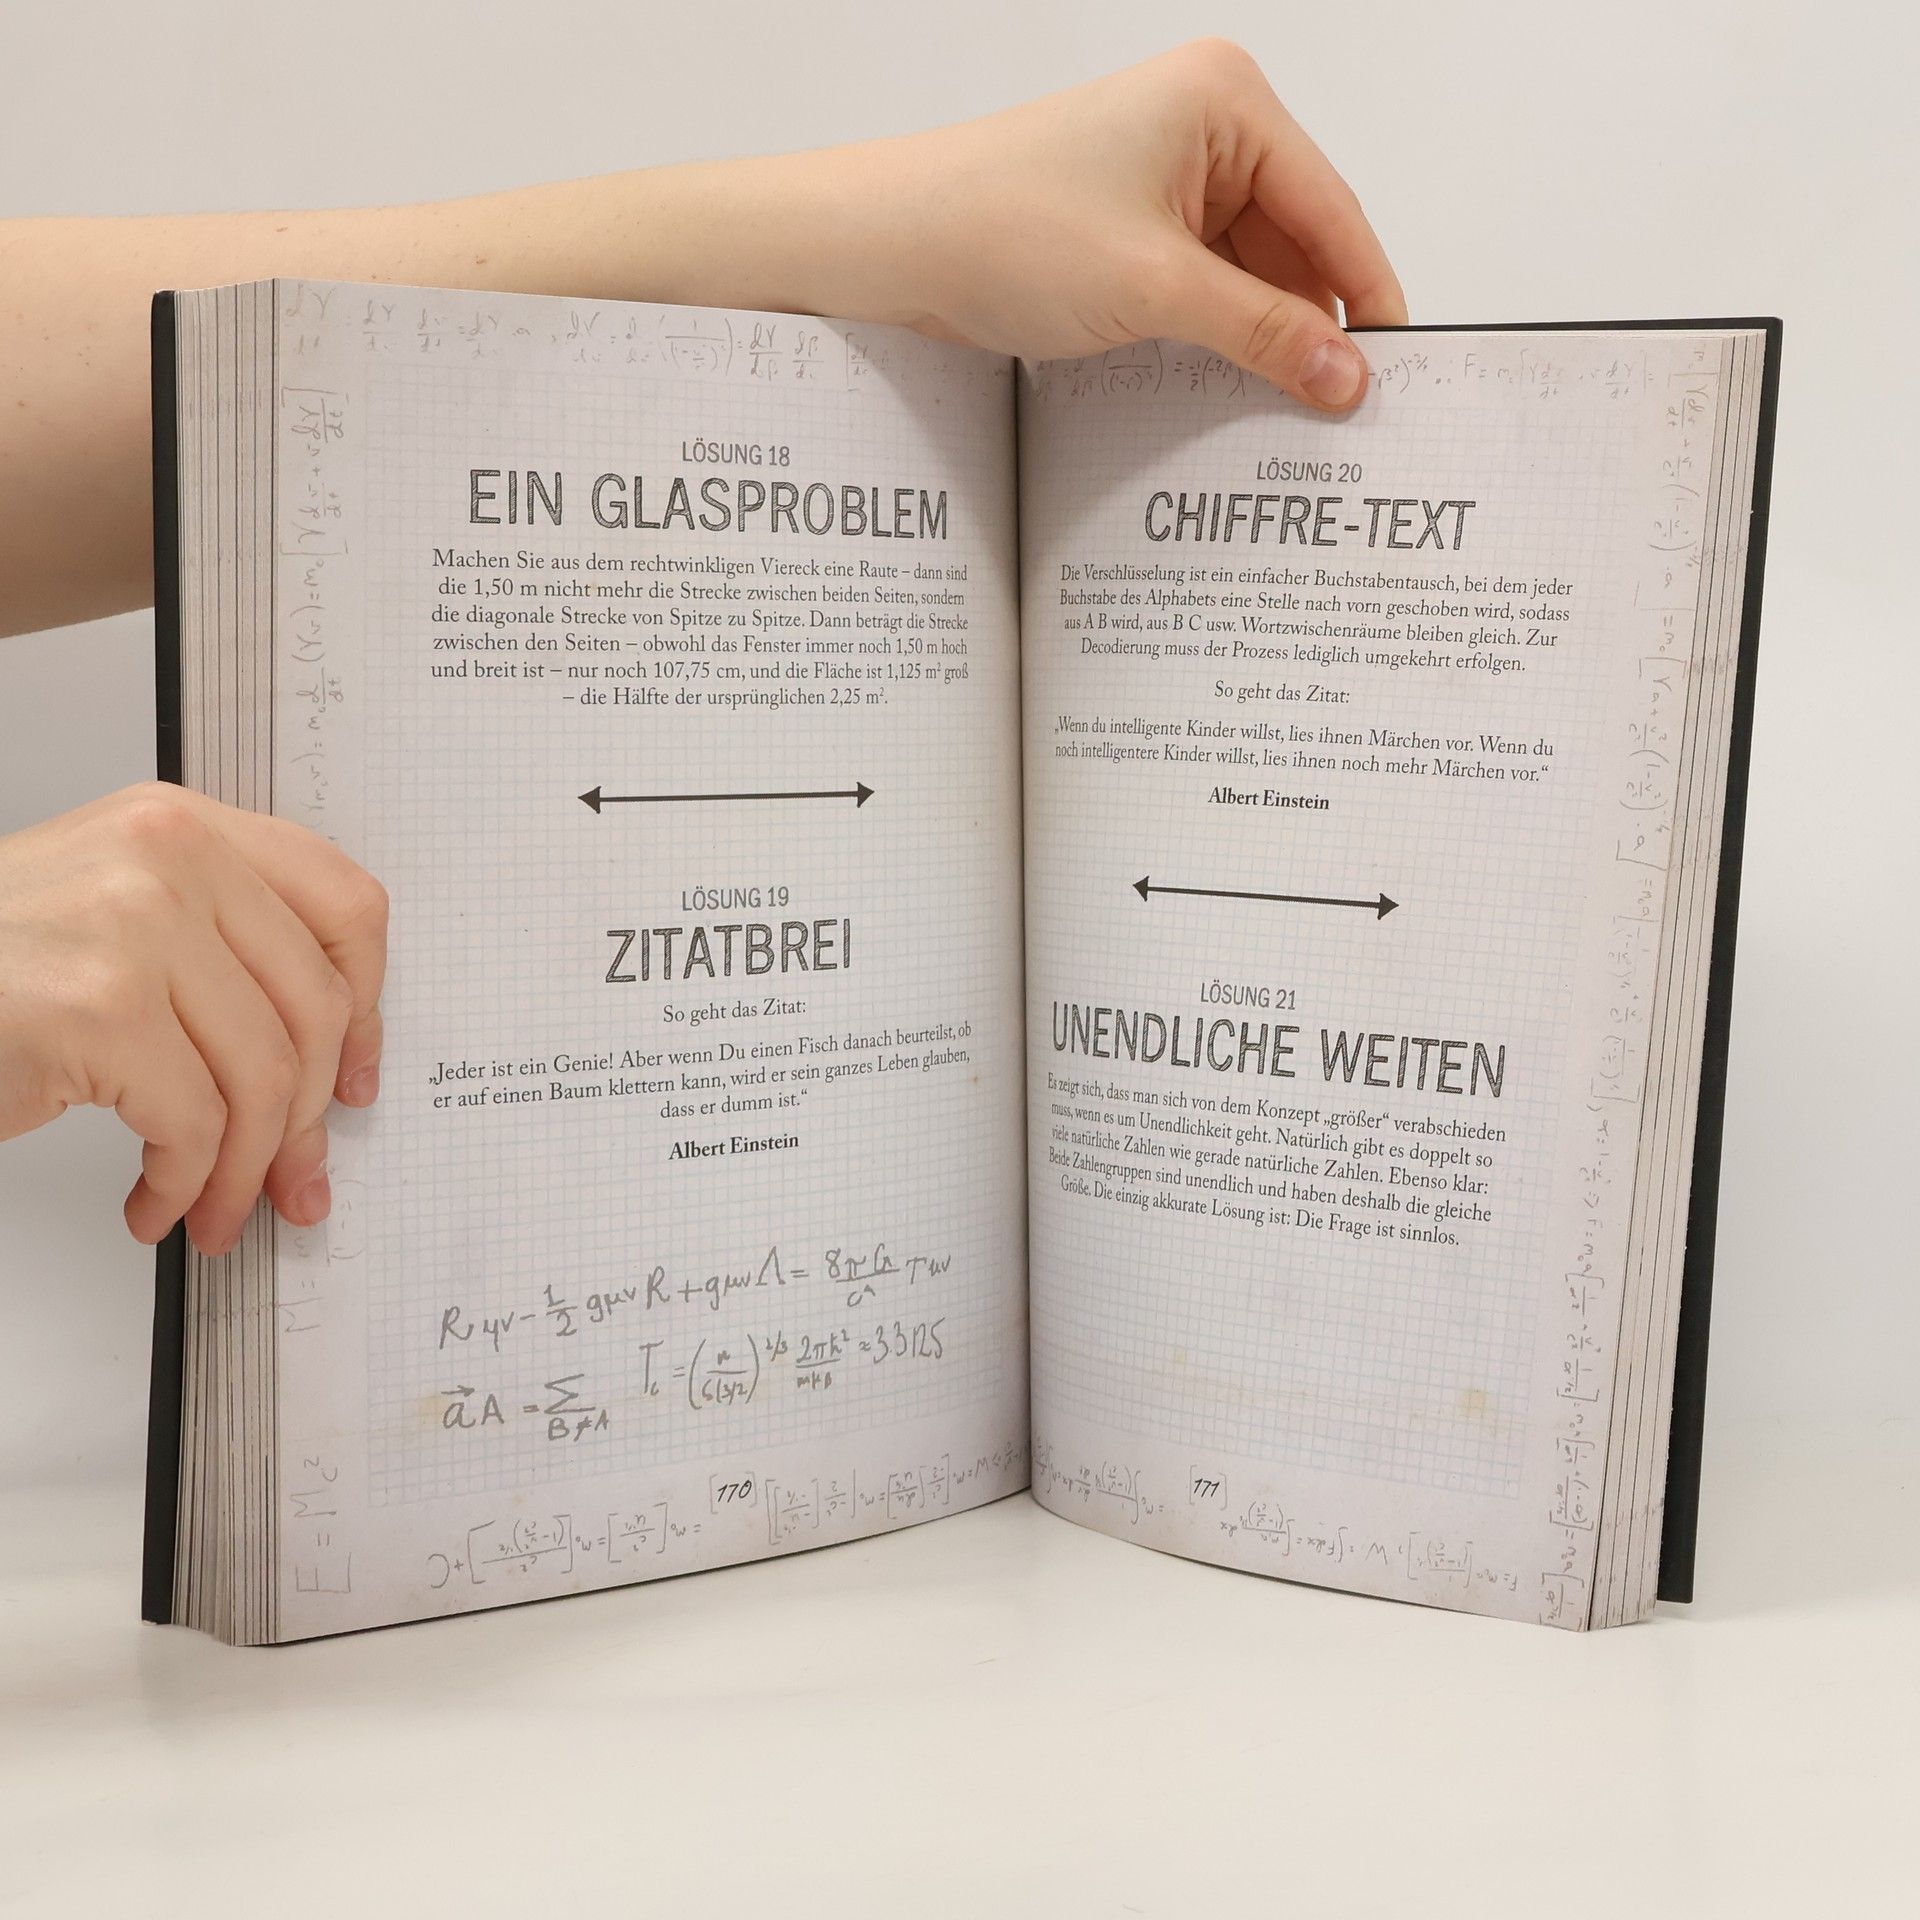 LÖSUNG 18
EIN GLASPROBLEM
Machen Sie aus dem rechtwinkligen Viereck eine Raute – dann sind
die 1,50 m nicht mehr die Strecke zwischen beiden Seiten, sondern
die diagonale Strecke von Spitze zu Spitze. Dann beträgt die Strecke
zwischen den Seiten – obwohl das Fenster immer noch 1,50 m hoch
und breit ist – nur noch 107,75 cm, und die Fläche ist 1,125 m² groß
– die Hälfte der ursprünglichen 2,25 m².
LÖSUNG 19
ZITATBREI
So geht das Zitat:
„Jeder ist ein Genie! Aber wenn Du einen Fisch danach beurteilst, ob
er auf einen Baum klettern kann, wird er sein ganzes Leben glauben,
dass er dumm ist.“
Albert Einstein
[170]
E = Mc²
LÖSUNG 20
CHIFFRE-TEXT
Die Verschlüsselung ist ein einfacher Buchstabentausch, bei dem jeder
Buchstabe des Alphabets eine Stelle nach vorn geschoben wird, sodass
aus A B wird, aus B C usw. Wortzwischenräume bleiben gleich. Zur
Decodierung muss der Prozess lediglich umgekehrt erfolgen.
So geht das Zitat:
„Wenn du intelligente Kinder willst, lies ihnen Märchen vor. Wenn du
noch intelligentere Kinder willst, lies ihnen noch mehr Märchen vor.“
Albert Einstein
LÖSUNG 21
UNENDLICHE WEITEN
Es zeigt sich, dass man sich von dem Konzept „größer“ verabschieden
muss, wenn es um Unendlichkeit geht. Natürlich gibt es doppelt so
viele natürliche Zahlen wie gerade natürliche Zahlen. Ebenso klar:
Beide Zahlengruppen sind unendlich und haben deshalb die gleiche
Größe. Die einzig akkurate Lösung ist: Die Frage ist sinnlos.
[171]